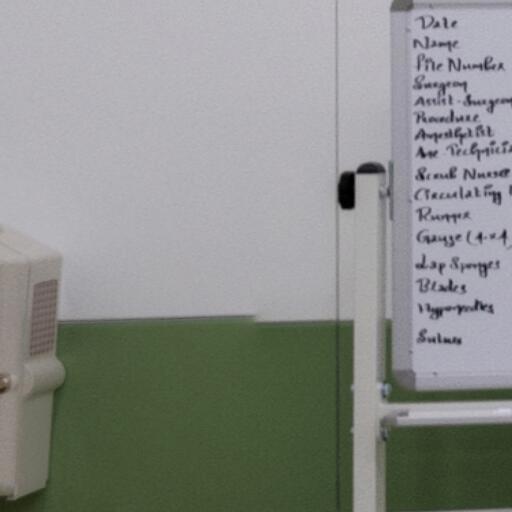 Date
Name
File Number
Surgeon
Assist-Surgeon
Procedure
Anesthetist
Ane Technicia
Scrub Nurse
Circulating
Runner
Gauze (4x4)
Lap Sponges
Blades
Hyponeedles
Sutures